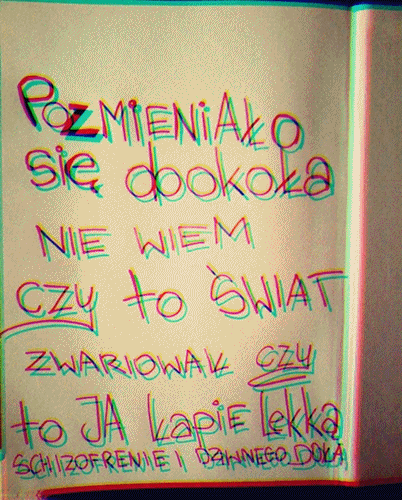 POZMIENIAŁO
się dookoła
NIE WIEM
CZY to ŚWIAT
ZWARIOWAŁ CZY
to JA ŁAPIE LEKKĄ
SCHIZOFRENIE I DZIWNEGO DOŁA